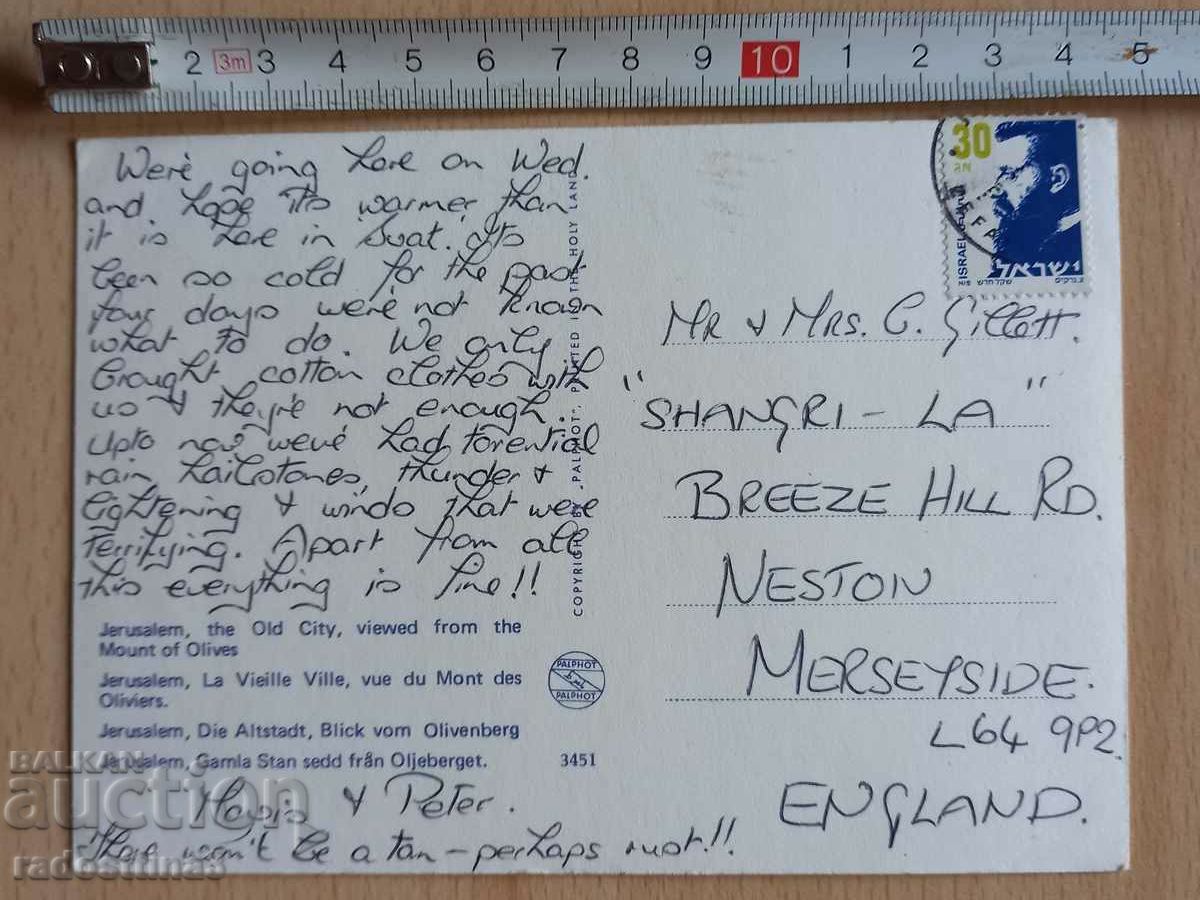 2 3m 3 4 5 6 7 8 9 10 1 2 3 4 5
We're going here on Wed.
and. hope its warmer than
it is here in Suat. Its
been so cold for the past
four days were not known
what to do. We only
brought cotton clothes with
us & they're not enough.
Upto now we've had torential
rain hailstones, thunder &
lightening & winds that were
terrifying. Apart from all
this everything is fine!!
Jerusalem, the Old City, viewed from the
Mount of Olives
Jerusalem, La Vieille Ville, vue du Mont des
Oliviers.
Jerusalem, Die Altstadt, Blick vom Olivenberg
Jerusalem, Gamla Stan sedd från Oljeberget.
3451
& Peter.
There won't be a tan – perhaps rust!!
COPYRIGHT BY "PALPHOT", PRINTED IN THE HOLY LAND
PALPHOT
PALPHOT
30
ISRAEL
ישראל
שקל חדש
Mr & Mrs. C. Gillett.
"SHANGRI-LA"
BREEZE HILL RD.
NESTON
MERSEYSIDE.
L64 9P2
ENGLAND.
BALKAN
auction
radosttinas